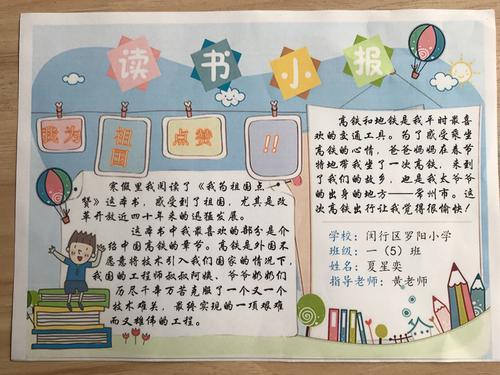 读书小报
我为 祖国 点赞 !!
寒假里我阅读了《我为祖国点
赞》这本书，感受到了祖国，尤其是改
革开放近四十年来的迅猛发展。
这本书中我最喜欢的部分是介
绍中国高铁的章节。高铁是外国不
愿意将技术引入我们国家的情况下，
我国的工程师叔叔阿姨、爷爷奶奶们
历尽千辛万苦克服了一个又一个
技术难关，最终实现的一项艰难
而又雄伟的工程。
高铁和地铁是我平时最喜
欢的交通工具。为了感受乘坐
高铁的心情，爸爸妈妈在春节
特地带我坐了一次高铁，来到
了我们的故乡，也是我太爷爷
的出身的地方——常州市。这
次高铁出行让我觉得很愉快！
学校：闵行区罗阳小学
班级：一（5）班
姓名：夏星奕
指导老师：黄老师